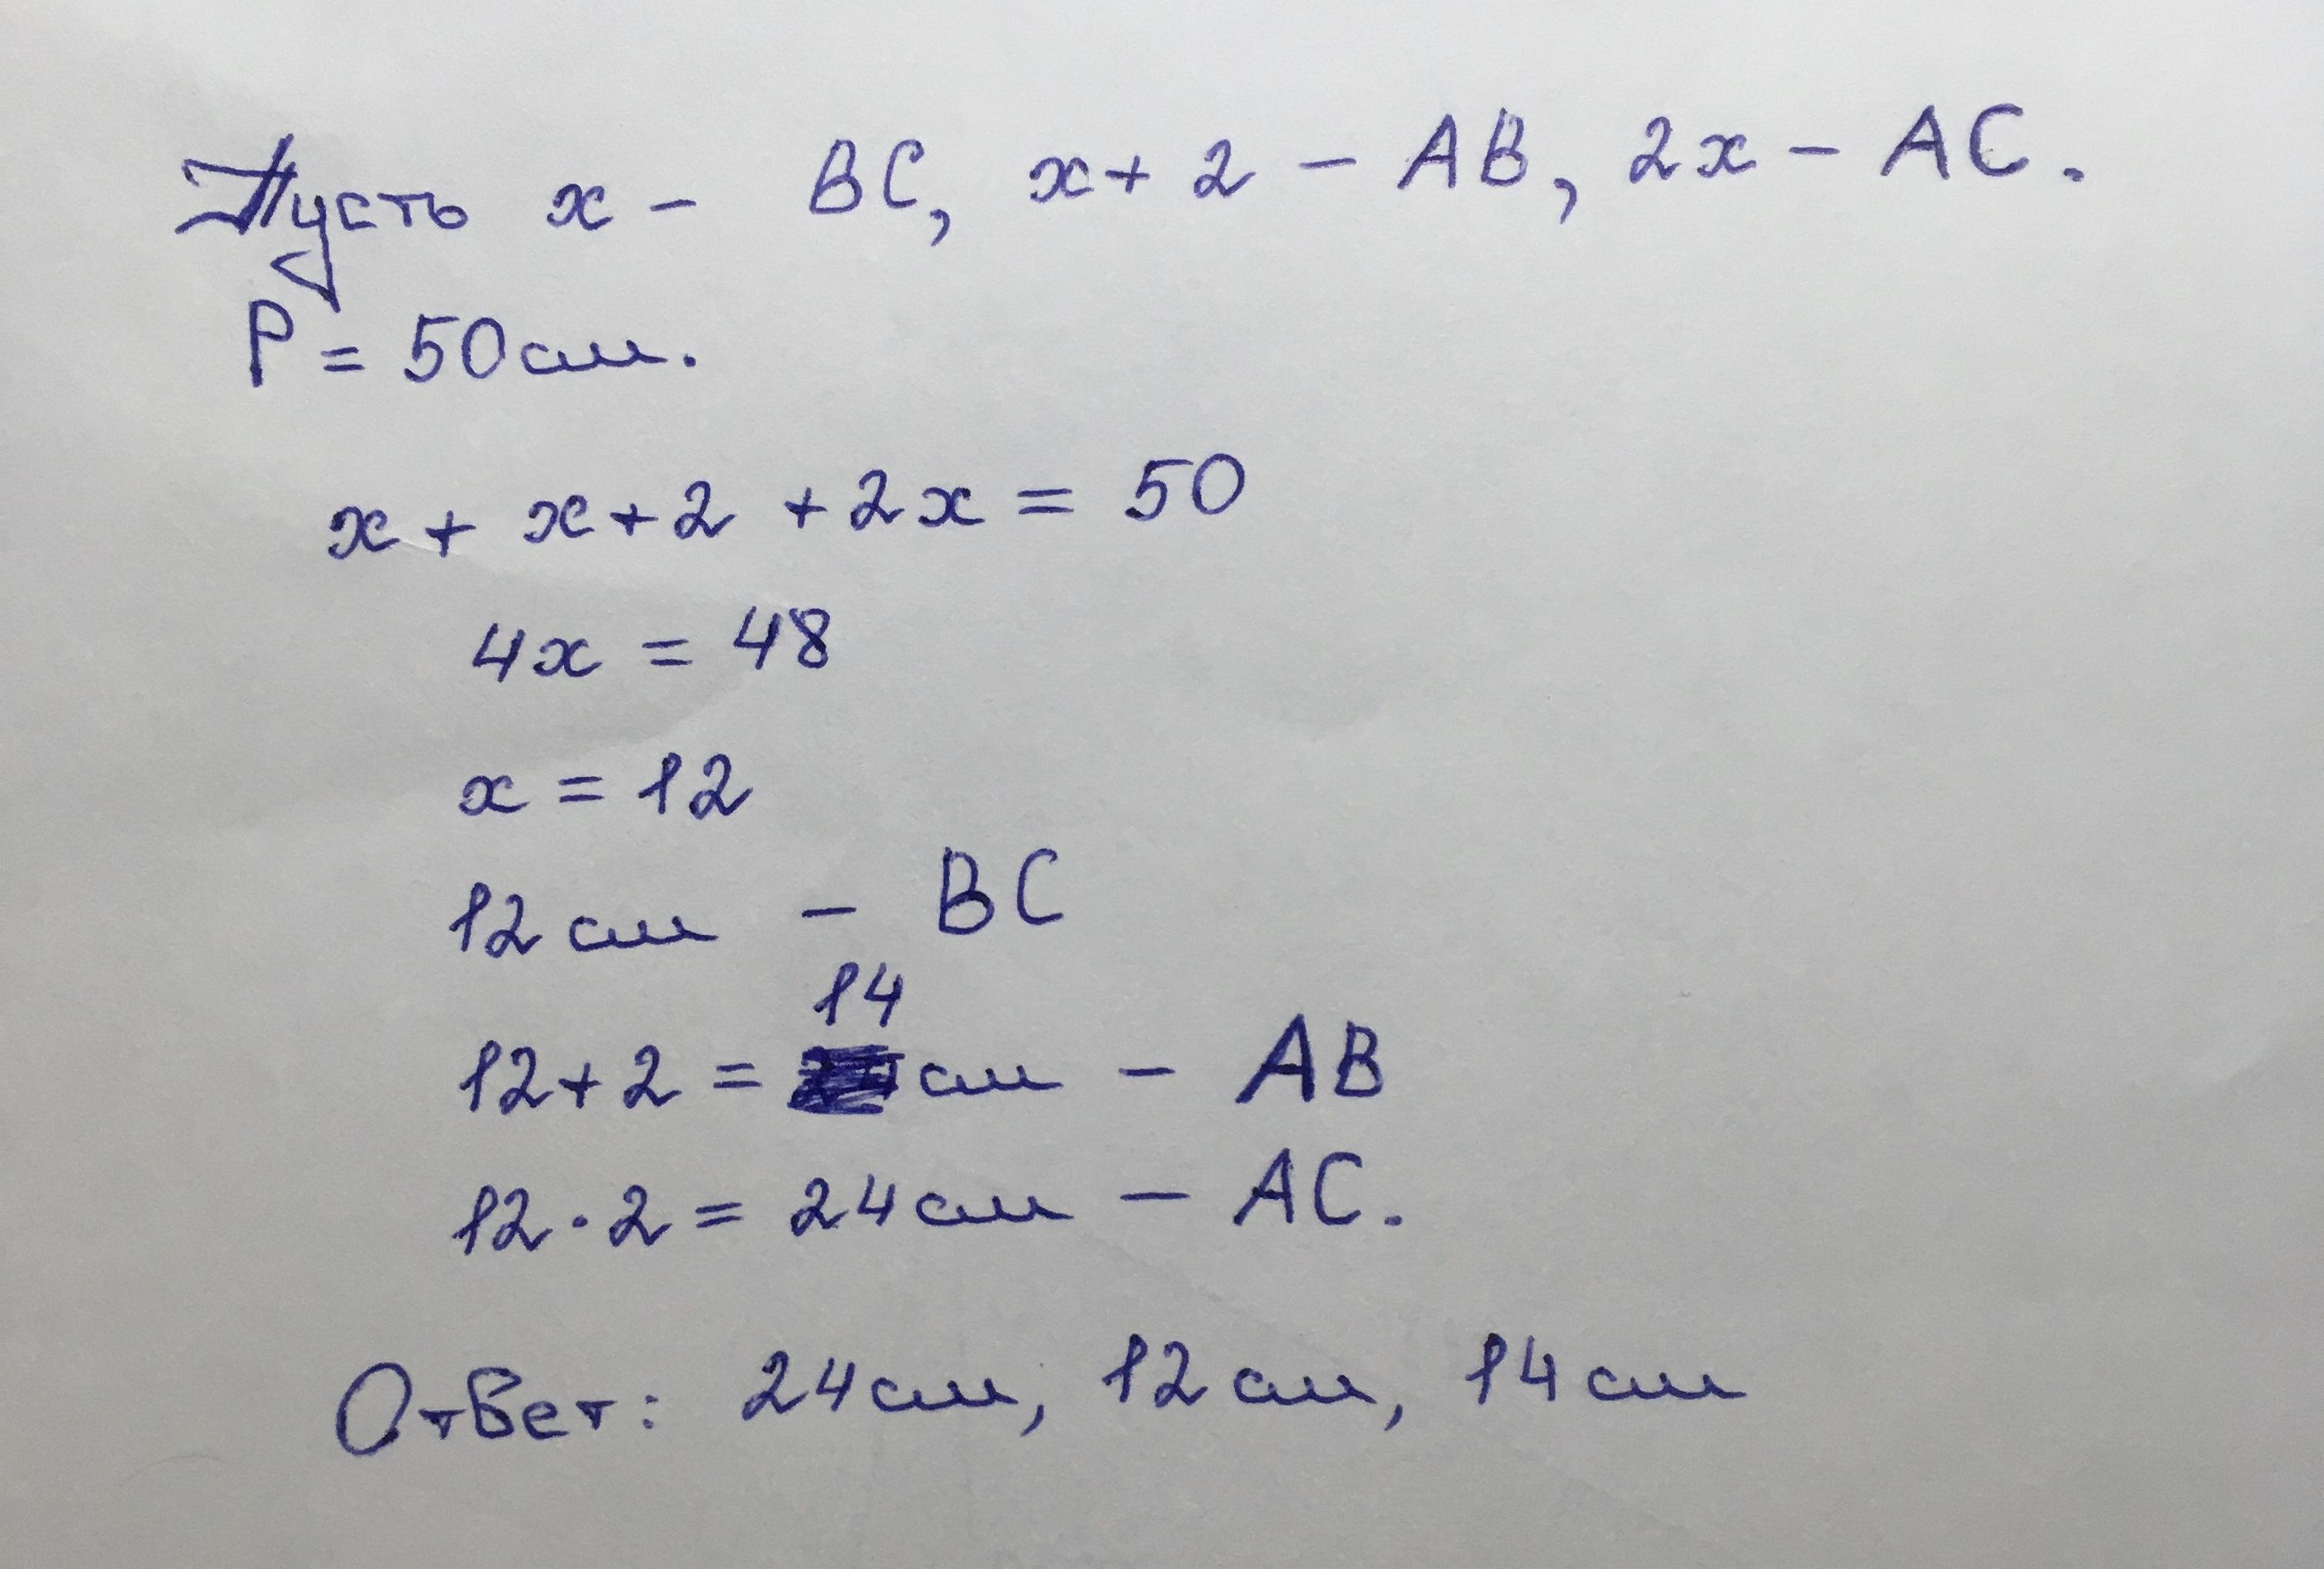 Пусть x - BC, x + 2 - AB, 2x - AC.
P = 50см.
x + x + 2 + 2x = 50
4x = 48
x = 12
12 см - BC
14
12 + 2 = см - AB
12 · 2 = 24 см - AC.
Ответ: 24 см, 12 см, 14 см